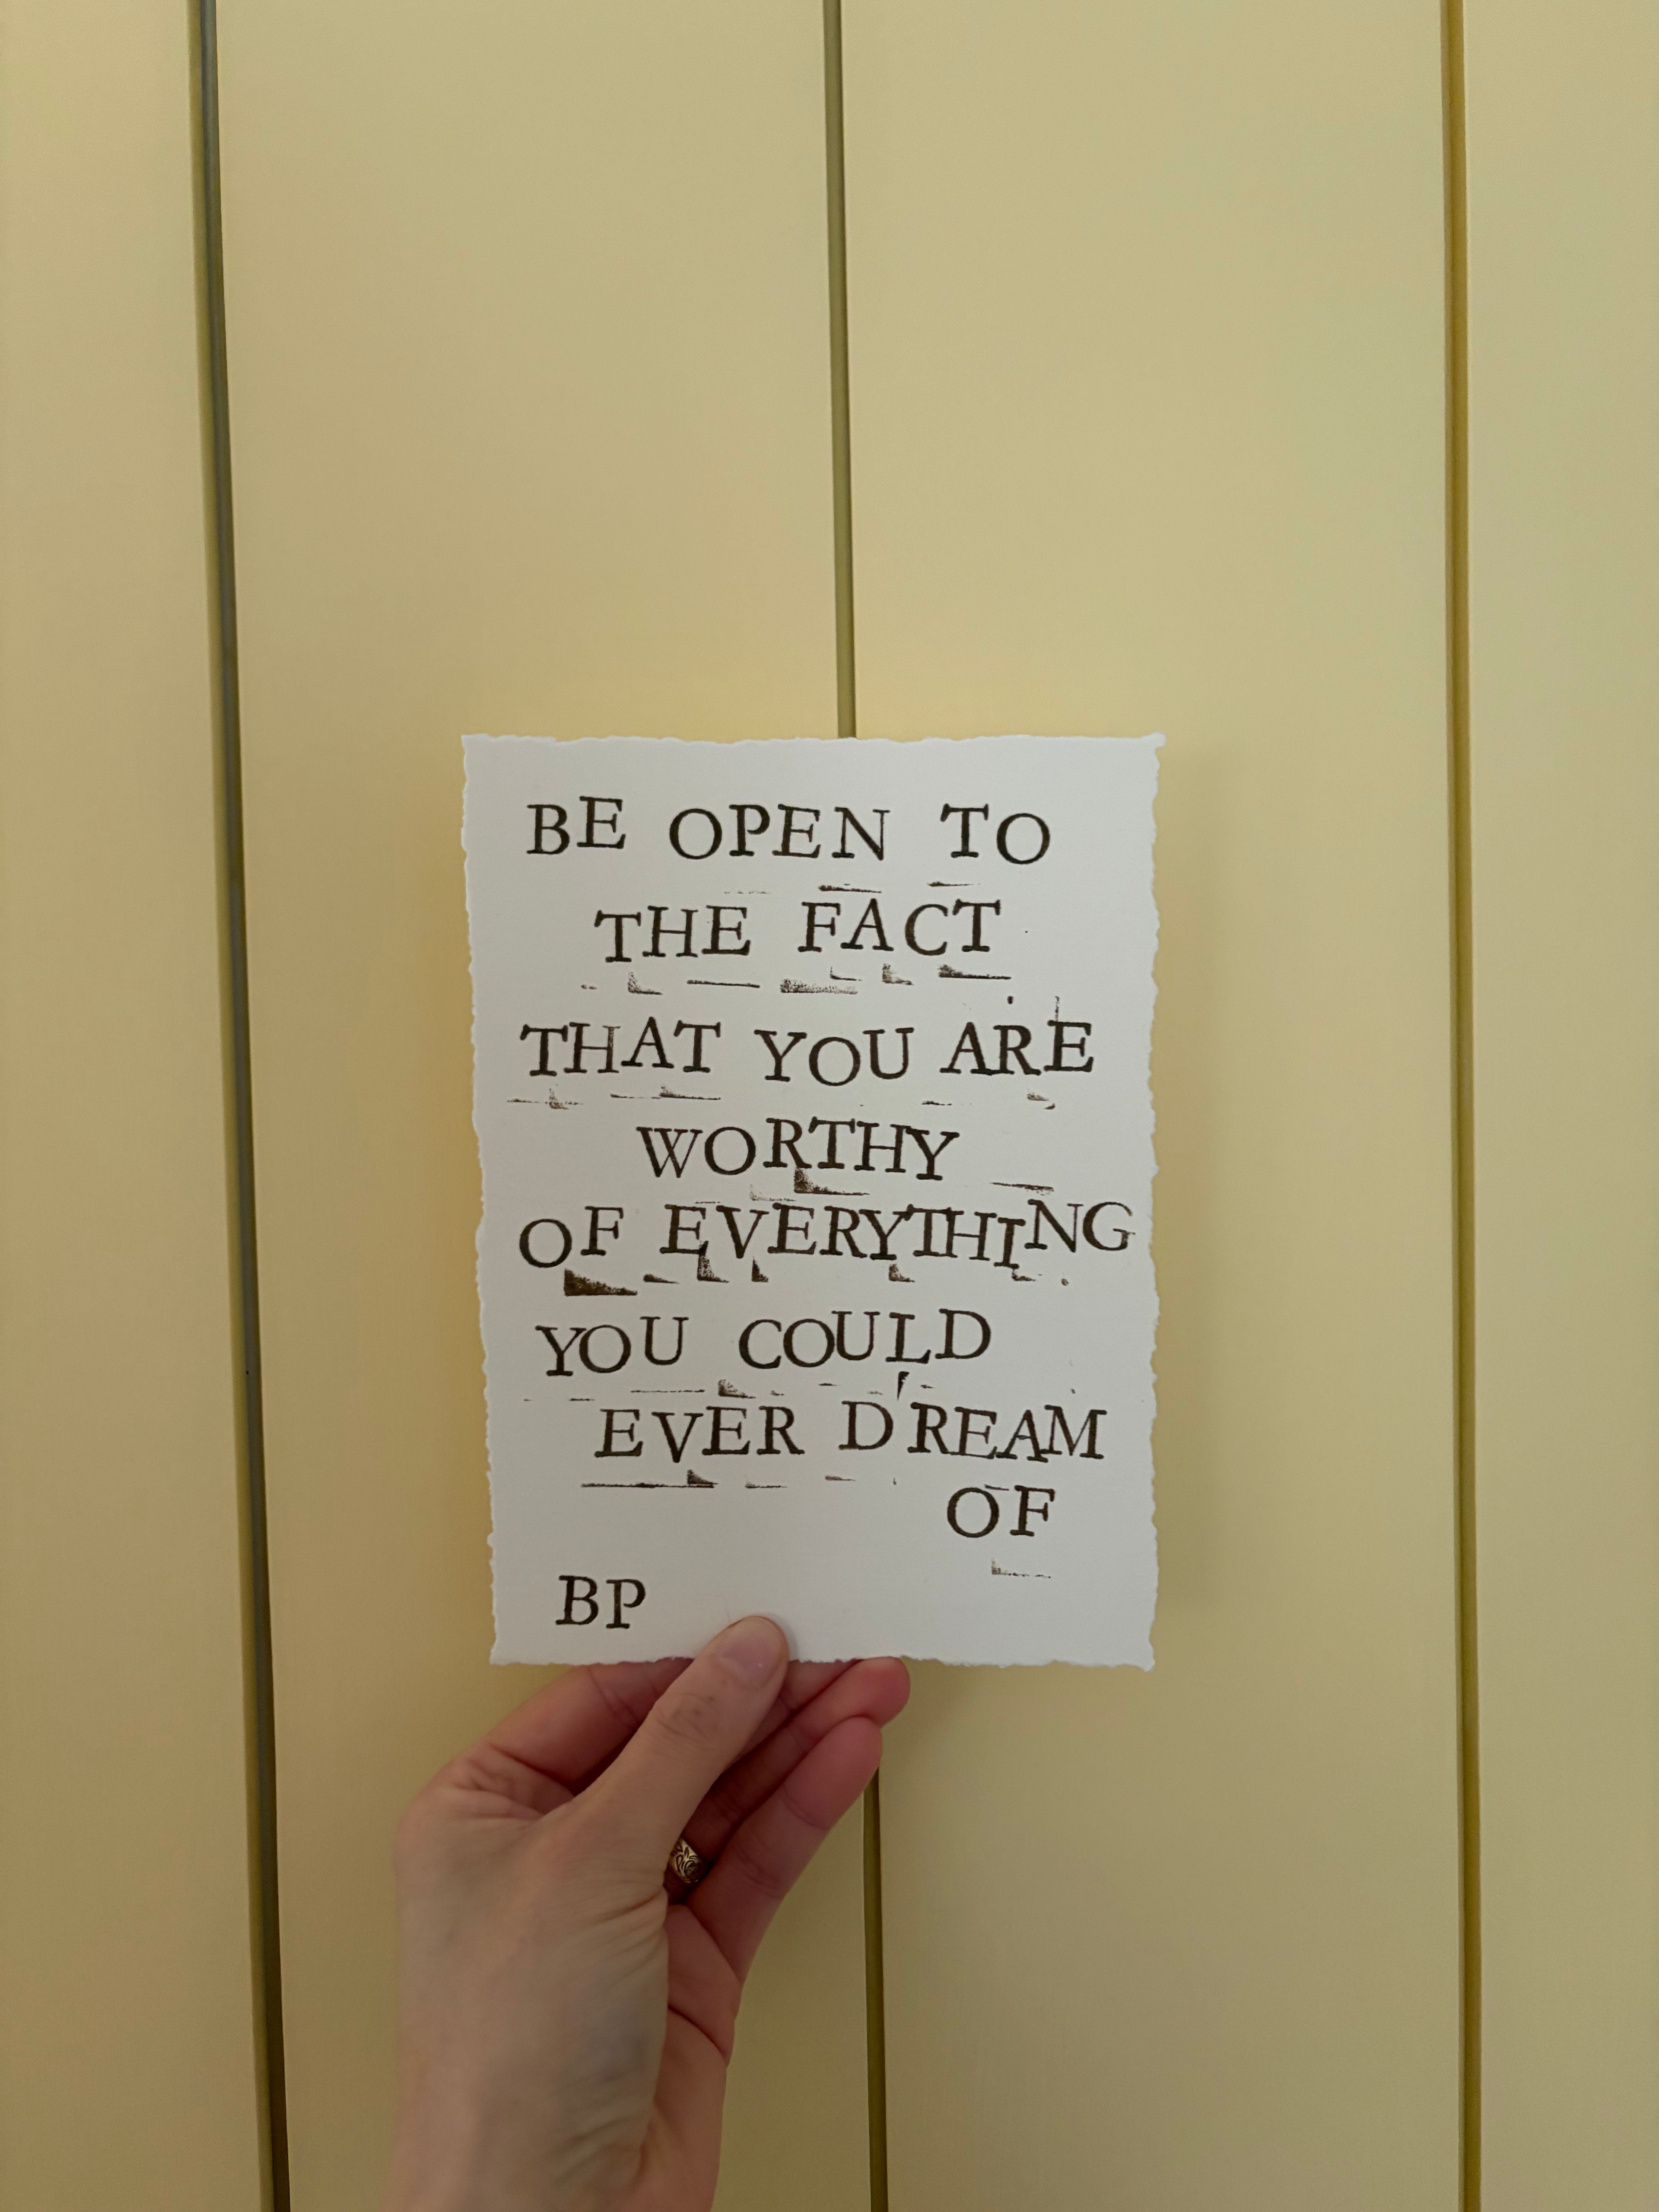 BE OPEN TO
THE FACT
THAT YOU ARE
WORTHY
OF EVERYTHING
YOU COULD
EVER DREAM
OF
BP